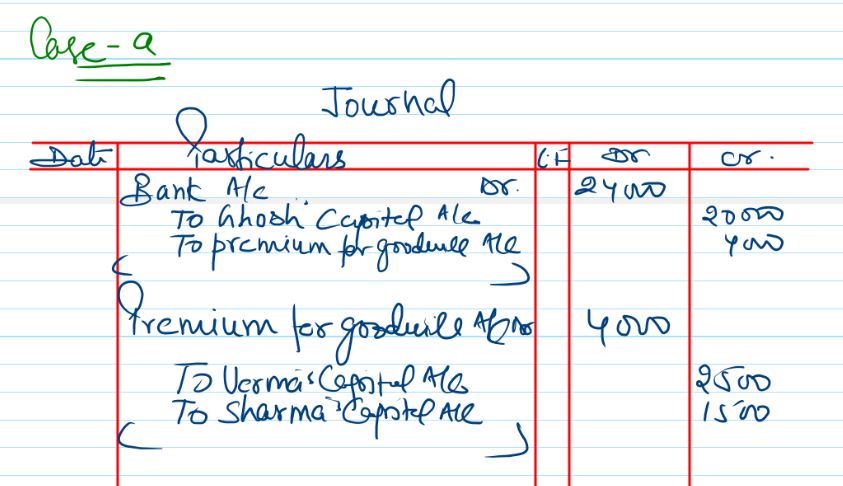 Case - a
Journal
Date Particulars L.F Dr Cr.
Bank A/c Dr. 24000
To Ghosh Capital A/c 20000
To premium for goodwill A/c 4000
( )
Premium for goodwill A/c Dr 4000
To Verma's Capital A/c 2500
To Sharma's Capital A/c 1500
( )